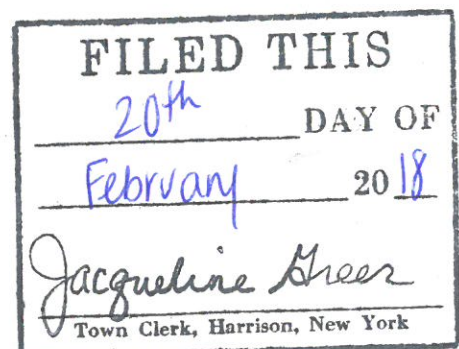 FILED THIS
20th DAY OF
February 2018
Jacqueline Greer
Town Clerk, Harrison, New York